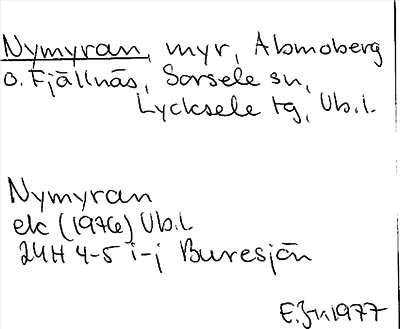 Nymyran, myr, Abmoberg
o. Fjällnäs, Sorsele sn,
Lycksele tg, Vb.l.
Nymyran
ek (1976) Vb.l.
24H 4-5 i-j Buresjön
1977